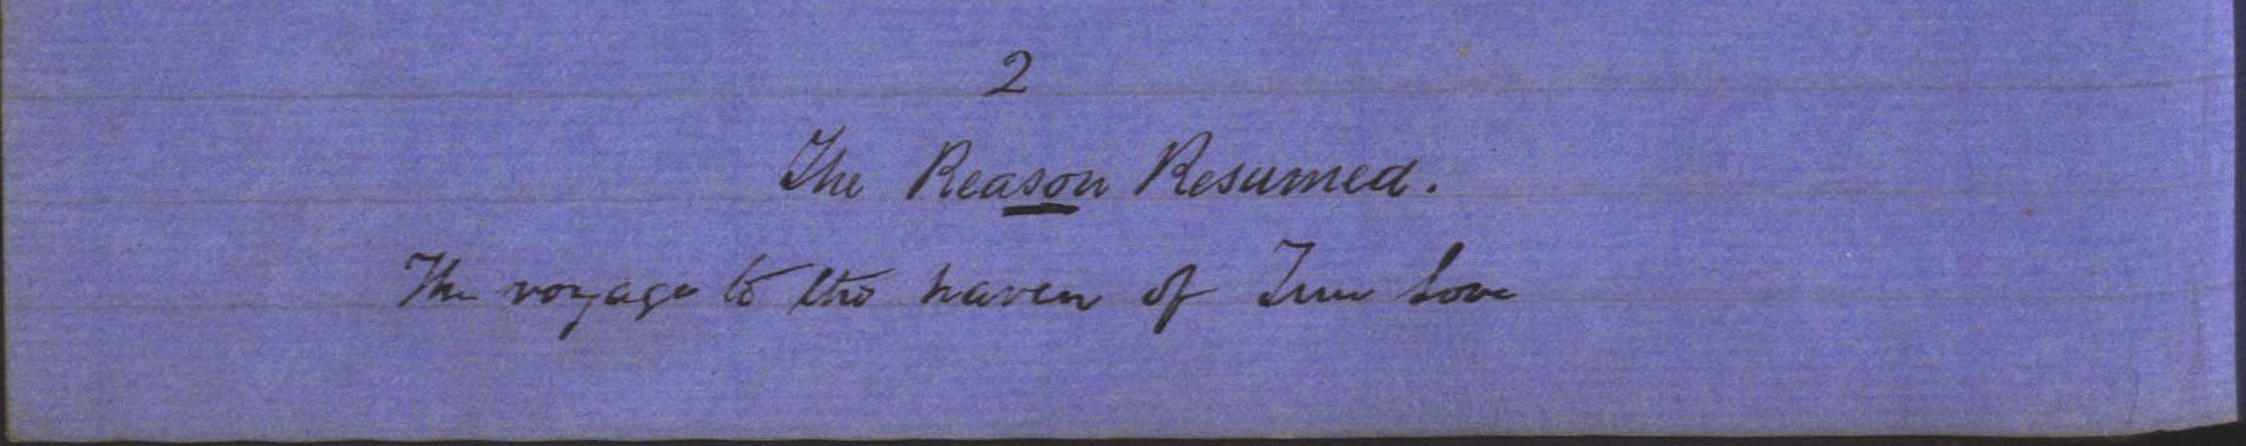 2
The Reason Resumed.
The voyage to the haven of True Love